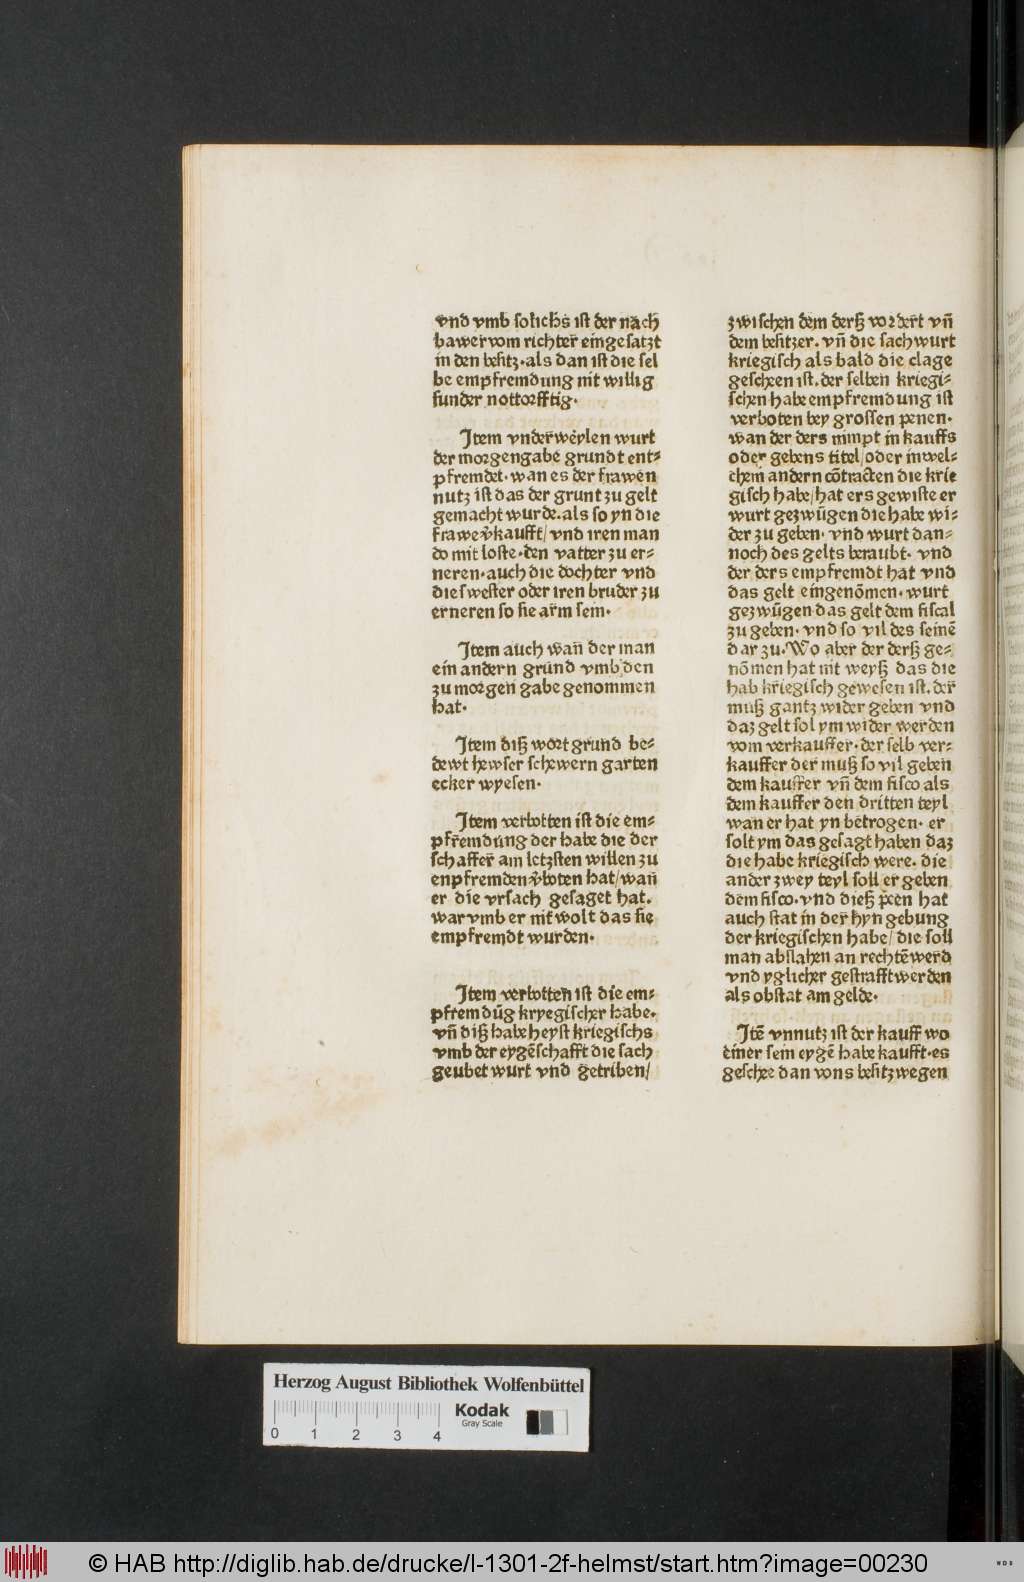 vnd vmb solichs ist der nach
bawer vom richter eingesatzt
in den besitz·als dan ist die sel
be empfremdung nit willig
sunder nottorfftig·
Jtem vnderweylen wurt
der morgengabe grundt ent⸗
pfremdet·wan es der frawen
nutz ist das der grunt zu gelt
gemacht wurde.als so yn die
frawe v̄kaufft/vnd iren man
do mit loste·den vatter zu er⸗
neren·auch die dochter vnd
die swester oder iren bruder zu
erneren so sie arm sein·
Jtem auch wan̄ der man
ein andern grund vmb den
zu morgen gabe genommen
hat·
Jtem diß wort grund be⸗
dewt hewser schewern garten
ecker wyesen·
Jtem verbotten ist die em⸗
pfremdung der habe die der
schaffer am letzsten willen zu
enpfremden v̄boten hat/wan̄
er die vrsach gesaget hat.
war vmb er nit wolt das sie
empfremdt wurden·
Jtem verbotten ist die em⸗
pfremdūg kryegischer habe.
vn̄ diß habe heyst kriegischs
vmb der eygēschafft die sach
geubet wurt vnd getriben/
zwischen dem derß vordert vn̄
dem besitzer. vn̄ die sach wurt
kriegisch als bald die clage
gescheen ist.der selben kriegi⸗
schen habe empfremdung ist
verboten bey grossen penen·
wan der ders nimpt in kauffs
oder gebens titel/oder in wel⸗
chem andern cōtracten die krie
gisch habe/hat ers gewiste er
wurt gezwūgen die habe wi⸗
der zu geben· vnd wurt dan⸗
noch des gelts beraubt· vnd
der ders empfremdt hat vnd
das gelt eingenōmen· wurt
gezwūgen das gelt dem fiscal
zu geben· vnd so vil des seinē
dar zu. Wo aber der derß ge⸗
nōmen hat nit weyß das die
hab kriegisch gewesen ist.der
muß gantz wider geben vnd
daz gelt sol ym wider werden
vom verkauffer·der selb ver⸗
kauffer der muß so vil geben
dem kauffer vn̄ dem fisco als
dem kauffer den dritten teyl
wan er hat yn betrogen· er
solt ym das gesagt haben daz
die habe kriegisch were. die
ander zwey teyl soll er geben
dem fisco·vnd dieß p̄en hat
auch stat in der hyn gebung
der kriegischen habe/die soll
man abslahen an rechtē werd
vnd yglicher gestrafft werden
als obstat am gelde·
Jtē vnnutz ist der kauff wo
einer sein eygē habe kaufft·es
geschee dan vons besitz wegen
Herzog August Bibliothek Wolfenbüttel
Kodak
Gray Scale
0 1 2 3 4
© HAB http://diglib.hab.de/drucke/l-1301-2f-helmst/start.htm?image=00230